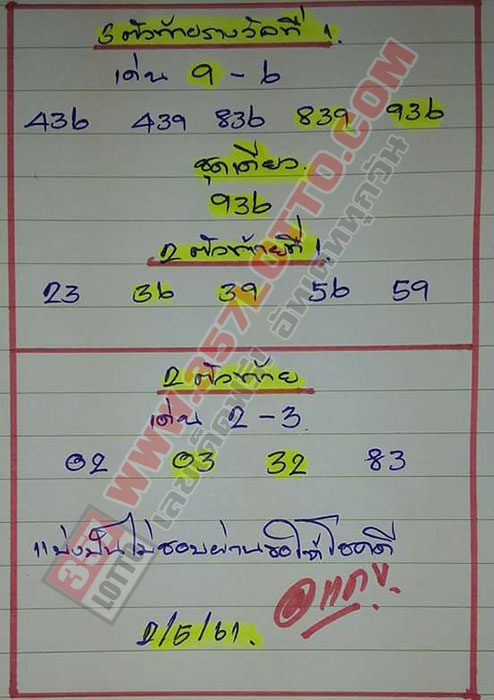 3 ตัวท้ายรางวัลที่ 1.
เด่น 9 - 6
436 439 836 839 936
ชุดเดียว.
936
2 ตัวท้ายที่ 1.
23 36 39 56 59
2 ตัวท้าย
เด่น 2 - 3
02 03 32 83
แบ่งปันไม่ชอบผ่านขอให้โชคดี
2/5/61.
357 LOTTO
WWW.357LOTTO.COM
เลขเด็ดฟรี อัพเดททุกวัน